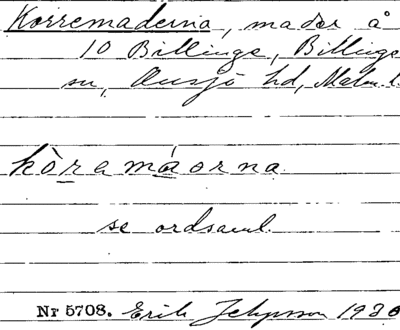 Korremaderna, mader å
10 Billinge, Billinge
sn, Onsjö hd, Malm. l.
kòramáorna
se ordsaml.
Nr 5708. Erik 1930